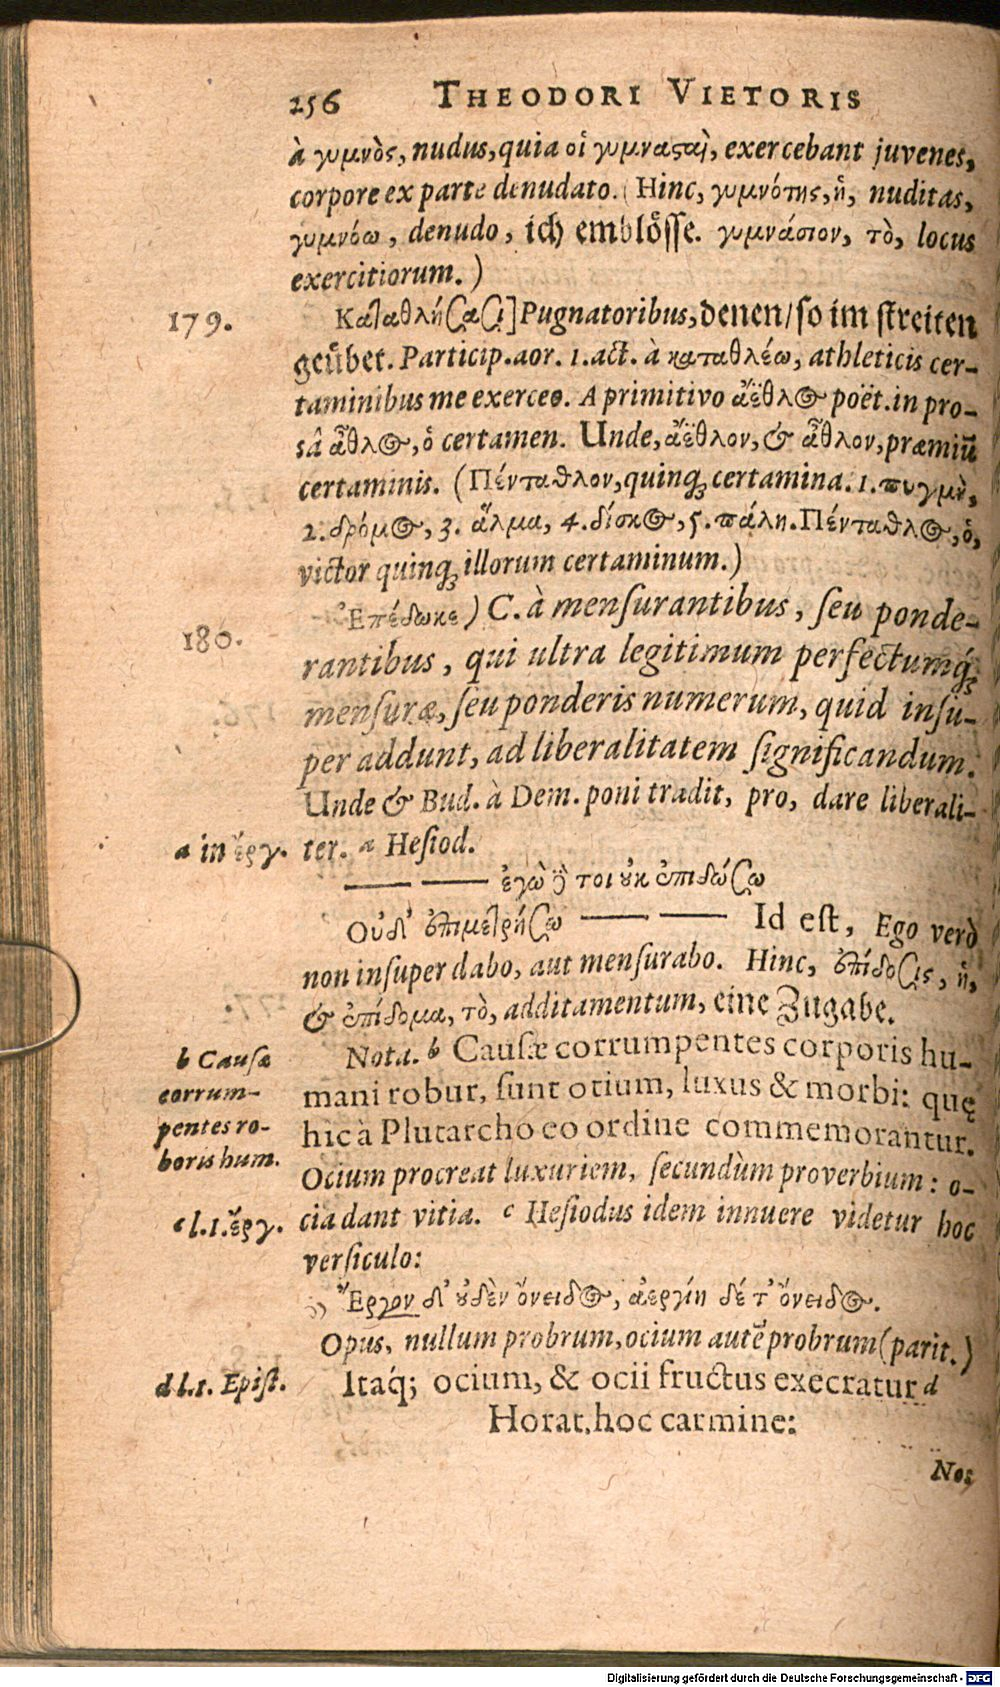 256 THEODORI VIETORIS
à γυμνὸς, nudus, quia οἱ γυμναςαὶ, exercebant juvenes,
corpore ex parte denudato. (Hinc, γυμνότης, ἡ, nuditas,
γυμνόω, denudo, ich emblösse. γυμνάσιον, τὸ, locus
exercitiorum.)
179. Καταθλήσασι] Pugnatoribus, denen/so im streiten
geübet. Particip. aor. 1. act. à καταθλέω, athleticis cer-
taminibus me exerceo. A primitivo ἄεθλος poët. in pro-
sâ ἆθλος, ὁ certamen. Unde, ἄεθλον, & ἆθλον, præmiū
certaminis. (Πένταθλον, quinq; certamina. 1. πυγμὴ,
2. δρόμος, 3. ἅλμα, 4. δίσκος, 5. πάλη. Πένταθλος, ὁ,
victor quinq; illorum certaminum.)
180. Ἐπέδωκε) C. à mensurantibus, seu ponde-
rantibus, qui ultra legitimum perfectumq́;
mensuræ, seu ponderis numerum, quid insu-
per addunt, ad liberalitatem significandum.
Unde & Bud. à Dem. poni tradit, pro, dare liberali-
a in ἔργ. ter. a Hesiod.
— — ἐγὼ δέ τοι οὐκ ἐπιδώσω
Οὐδ' ἐπιμετρήσω — — Id est, Ego verò
non insuper dabo, aut mensurabo. Hinc, ἐπίδοσις, ἡ,
& ἐπίδομα, τὸ, additamentum, eine Zugabe.
b Causæ Nota. b Causæ corrumpentes corporis hu-
corrum- mani robur, sunt otium, luxus & morbi: quę
pentes ro- hic à Plutarcho eo ordine commemorantur.
boris hum. Ocium procreat luxuriem, secundùm proverbium: o-
c l. 1. ἔργ. cia dant vitia. c Hesiodus idem innuere videtur hoc
versiculo:
Ἔργον δ' οὐδὲν ὄνειδος, ἀεργίη δέ τ' ὄνειδος.
Opus, nullum probrum, ocium autē probrum (parit.)
d l. 1. Epist. Itaq́; ocium, & ocii fructus execratur d
Horat. hoc carmine:
Nos
Digitalisierung gefördert durch die Deutsche Forschungsgemeinschaft - DFG